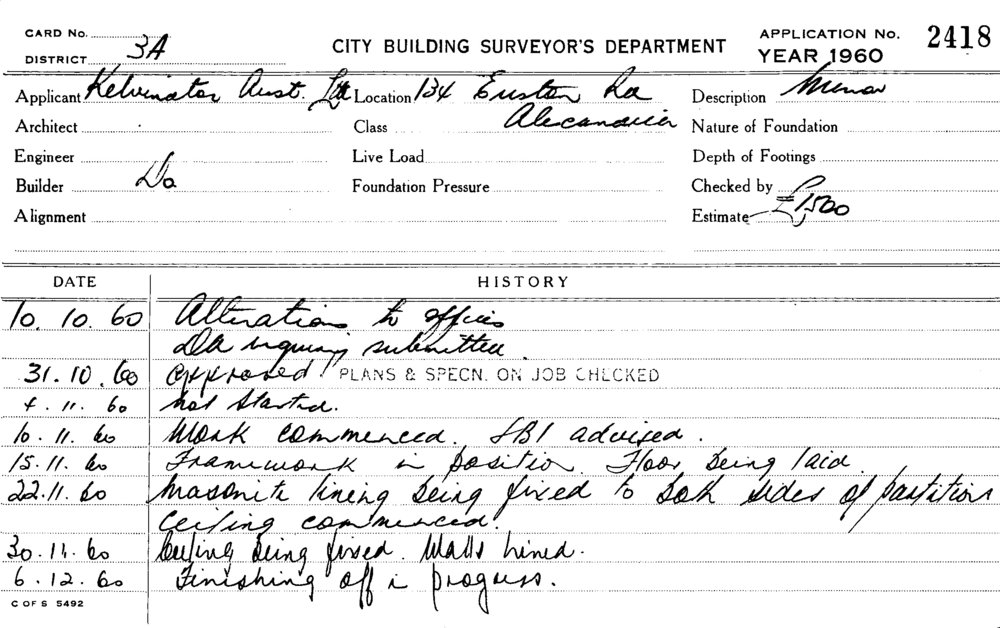 CARD No.
DISTRICT 3A
CITY BUILDING SURVEYOR'S DEPARTMENT
APPLICATION No. 2418
YEAR 1960
Applicant Kelvinator Aust. Ltd Location 134 Euston Rd Description Minor
Architect Class Alexandria Nature of Foundation
Engineer Live Load Depth of Footings
Builder Do Foundation Pressure Checked by
Alignment Estimate £1,500
DATE HISTORY
10.10.60 Alterations to offices
DA inquiry submitted.
31.10.60 Approved. PLANS & SPECN. ON JOB CHECKED
4.11.60 Not started.
10.11.60 Work commenced. SBI advised.
15.11.60 Framework in position. Floor being laid.
22.11.60 Masonite lining being fixed to both sides of partition
Ceiling commenced.
30.11.60 Ceiling being fixed. Walls lined.
6.12.60 Finishing off in progress.
C OF S 5492